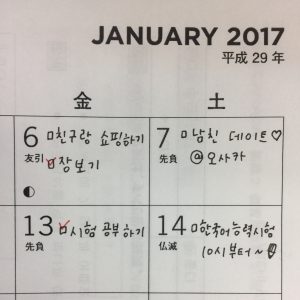 JANUARY 2017
平成 29 年
金 土
6 친구랑 쇼핑하기
友引 장보기
7 남친 데이트♡
先負 @오사카
13 시험 공부하기
先負
14 한국어능력시험
仏滅 10시부터~